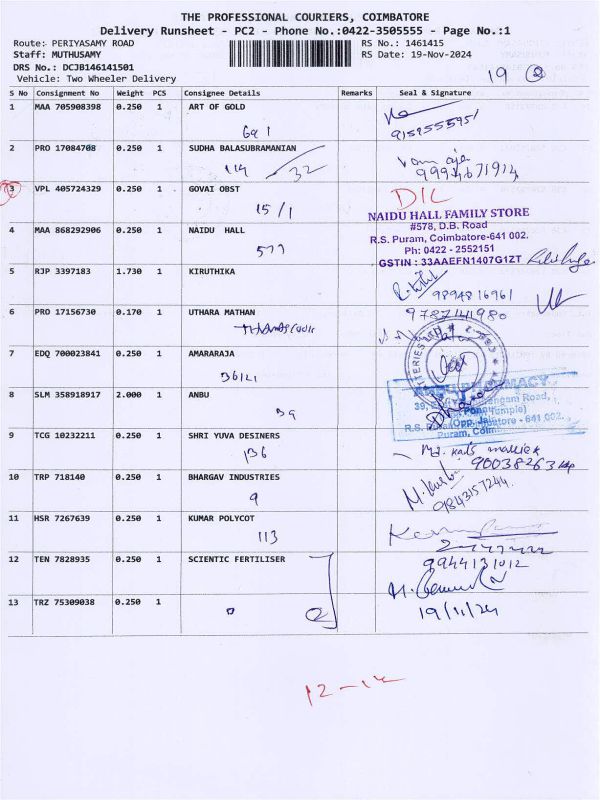 THE PROFESSIONAL COURIERS, COIMBATORE
Delivery Runsheet - PC2 - Phone No.:0422-3505555 - Page No.:1
Route: PERIYASAMY ROAD
RS No.: 1461415
Staff: MUTHUSAMY
RS Date: 19-Nov-2024
DRS No.: DCJB146141501
Vehicle: Two Wheeler Delivery
19 2
S No Consignment No Weight PCS Consignee Details Remarks Seal & Signature
1 MAA 705908398 0.250 1 ART OF GOLD
2 PRO 17084708 0.250 1 SUDHA BALASUBRAMANIAN
114 32
9994671914
3 VPL 405724329 0.250 1 GOVAI OBST
15/1
DIL
NAIDU HALL FAMILY STORE
#578, D.B. Road
R.S. Puram, Coimbatore-641 002.
Ph: 0422 - 2552151
GSTIN : 33AAEFN1407G1ZT
4 MAA 868292906 0.250 1 NAIDU HALL
577
5 RJP 3397183 1.730 1 KIRUTHIKA
9894816961
6 PRO 17156730 0.170 1 UTHARA MATHAN
9787141980
7 EDQ 700023841 0.250 1 AMARARAJA
8 SLM 358918917 2.000 1 ANBU
39
9 TCG 10232211 0.250 1 SHRI YUVA DESINERS
136
10 TRP 718140 0.250 1 BHARGAV INDUSTRIES
9
9843157244
11 HSR 7267639 0.250 1 KUMAR POLYCOT
113
12 TEN 7828935 0.250 1 SCIENTIFIC FERTILISER
9944131012
13 TRZ 75309038 0.250 1
19/11/24